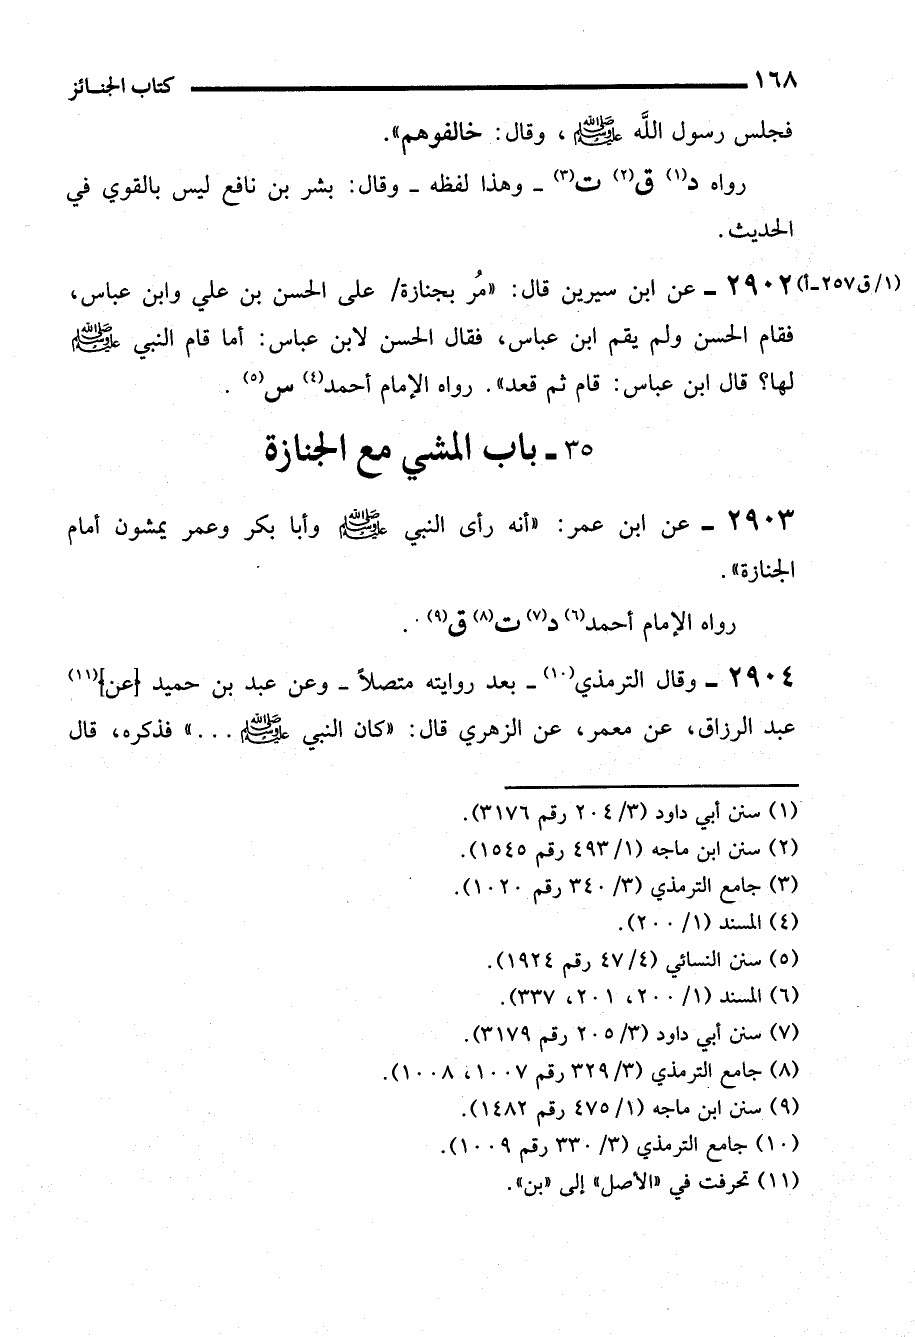 ١٦٨ كتاب الجنائز
فجلس رسول اللَّه ﷺ، وقال: خالفوهم».
رواه د(١) ق(٢) ت(٣) ـ وهذا لفظه ـ وقال: بشر بن نافع ليس بالقوي في
الحديث.
(١/ق٢٥٧-أ) ٢٩٠٢ ـ عن ابن سيرين قال: «مُر بجنازة/ على الحسن بن علي وابن عباس،
فقام الحسن ولم يقم ابن عباس، فقال الحسن لابن عباس: أما قام النبي ﷺ
لها؟ قال ابن عباس: قام ثم قعد». رواه الإمام أحمد(٤) س(٥).
٣٥ ـ باب المشي مع الجنازة
٢٩٠٣ ـ عن ابن عمر: «أنه رأى النبي ﷺ وأبا بكر وعمر يمشون أمام
الجنازة».
رواه الإمام أحمد(٦) د(٧) ت(٨) ق(٩).
٢٩٠٤ ـ وقال الترمذي(١٠) ـ بعد روايته متصلاً ـ وعن عبد بن حميد [عن](١١)
عبد الرزاق، عن معمر، عن الزهري قال: «كان النبي ﷺ...» فذكره، قال
(١) سنن أبي داود (٣/ ٢٠٤ رقم ٣١٧٦).
(٢) سنن ابن ماجه (١/ ٤٩٣ رقم ١٥٤٥).
(٣) جامع الترمذي (٣/ ٣٤٠ رقم ١٠٢٠).
(٤) المسند (١/ ٢٠٠).
(٥) سنن النسائي (٤/ ٤٧ رقم ١٩٢٤).
(٦) المسند (١/ ٢٠٠، ٢٠١، ٣٣٧).
(٧) سنن أبي داود (٣/ ٢٠٥ رقم ٣١٧٩).
(٨) جامع الترمذي (٣/ ٣٢٩ رقم ١٠٠٧، ١٠٠٨).
(٩) سنن ابن ماجه (١/ ٤٧٥ رقم ١٤٨٢).
(١٠) جامع الترمذي (٣/ ٣٣٠ رقم ١٠٠٩).
(١١) تحرفت في «الأصل» إلى «بن».